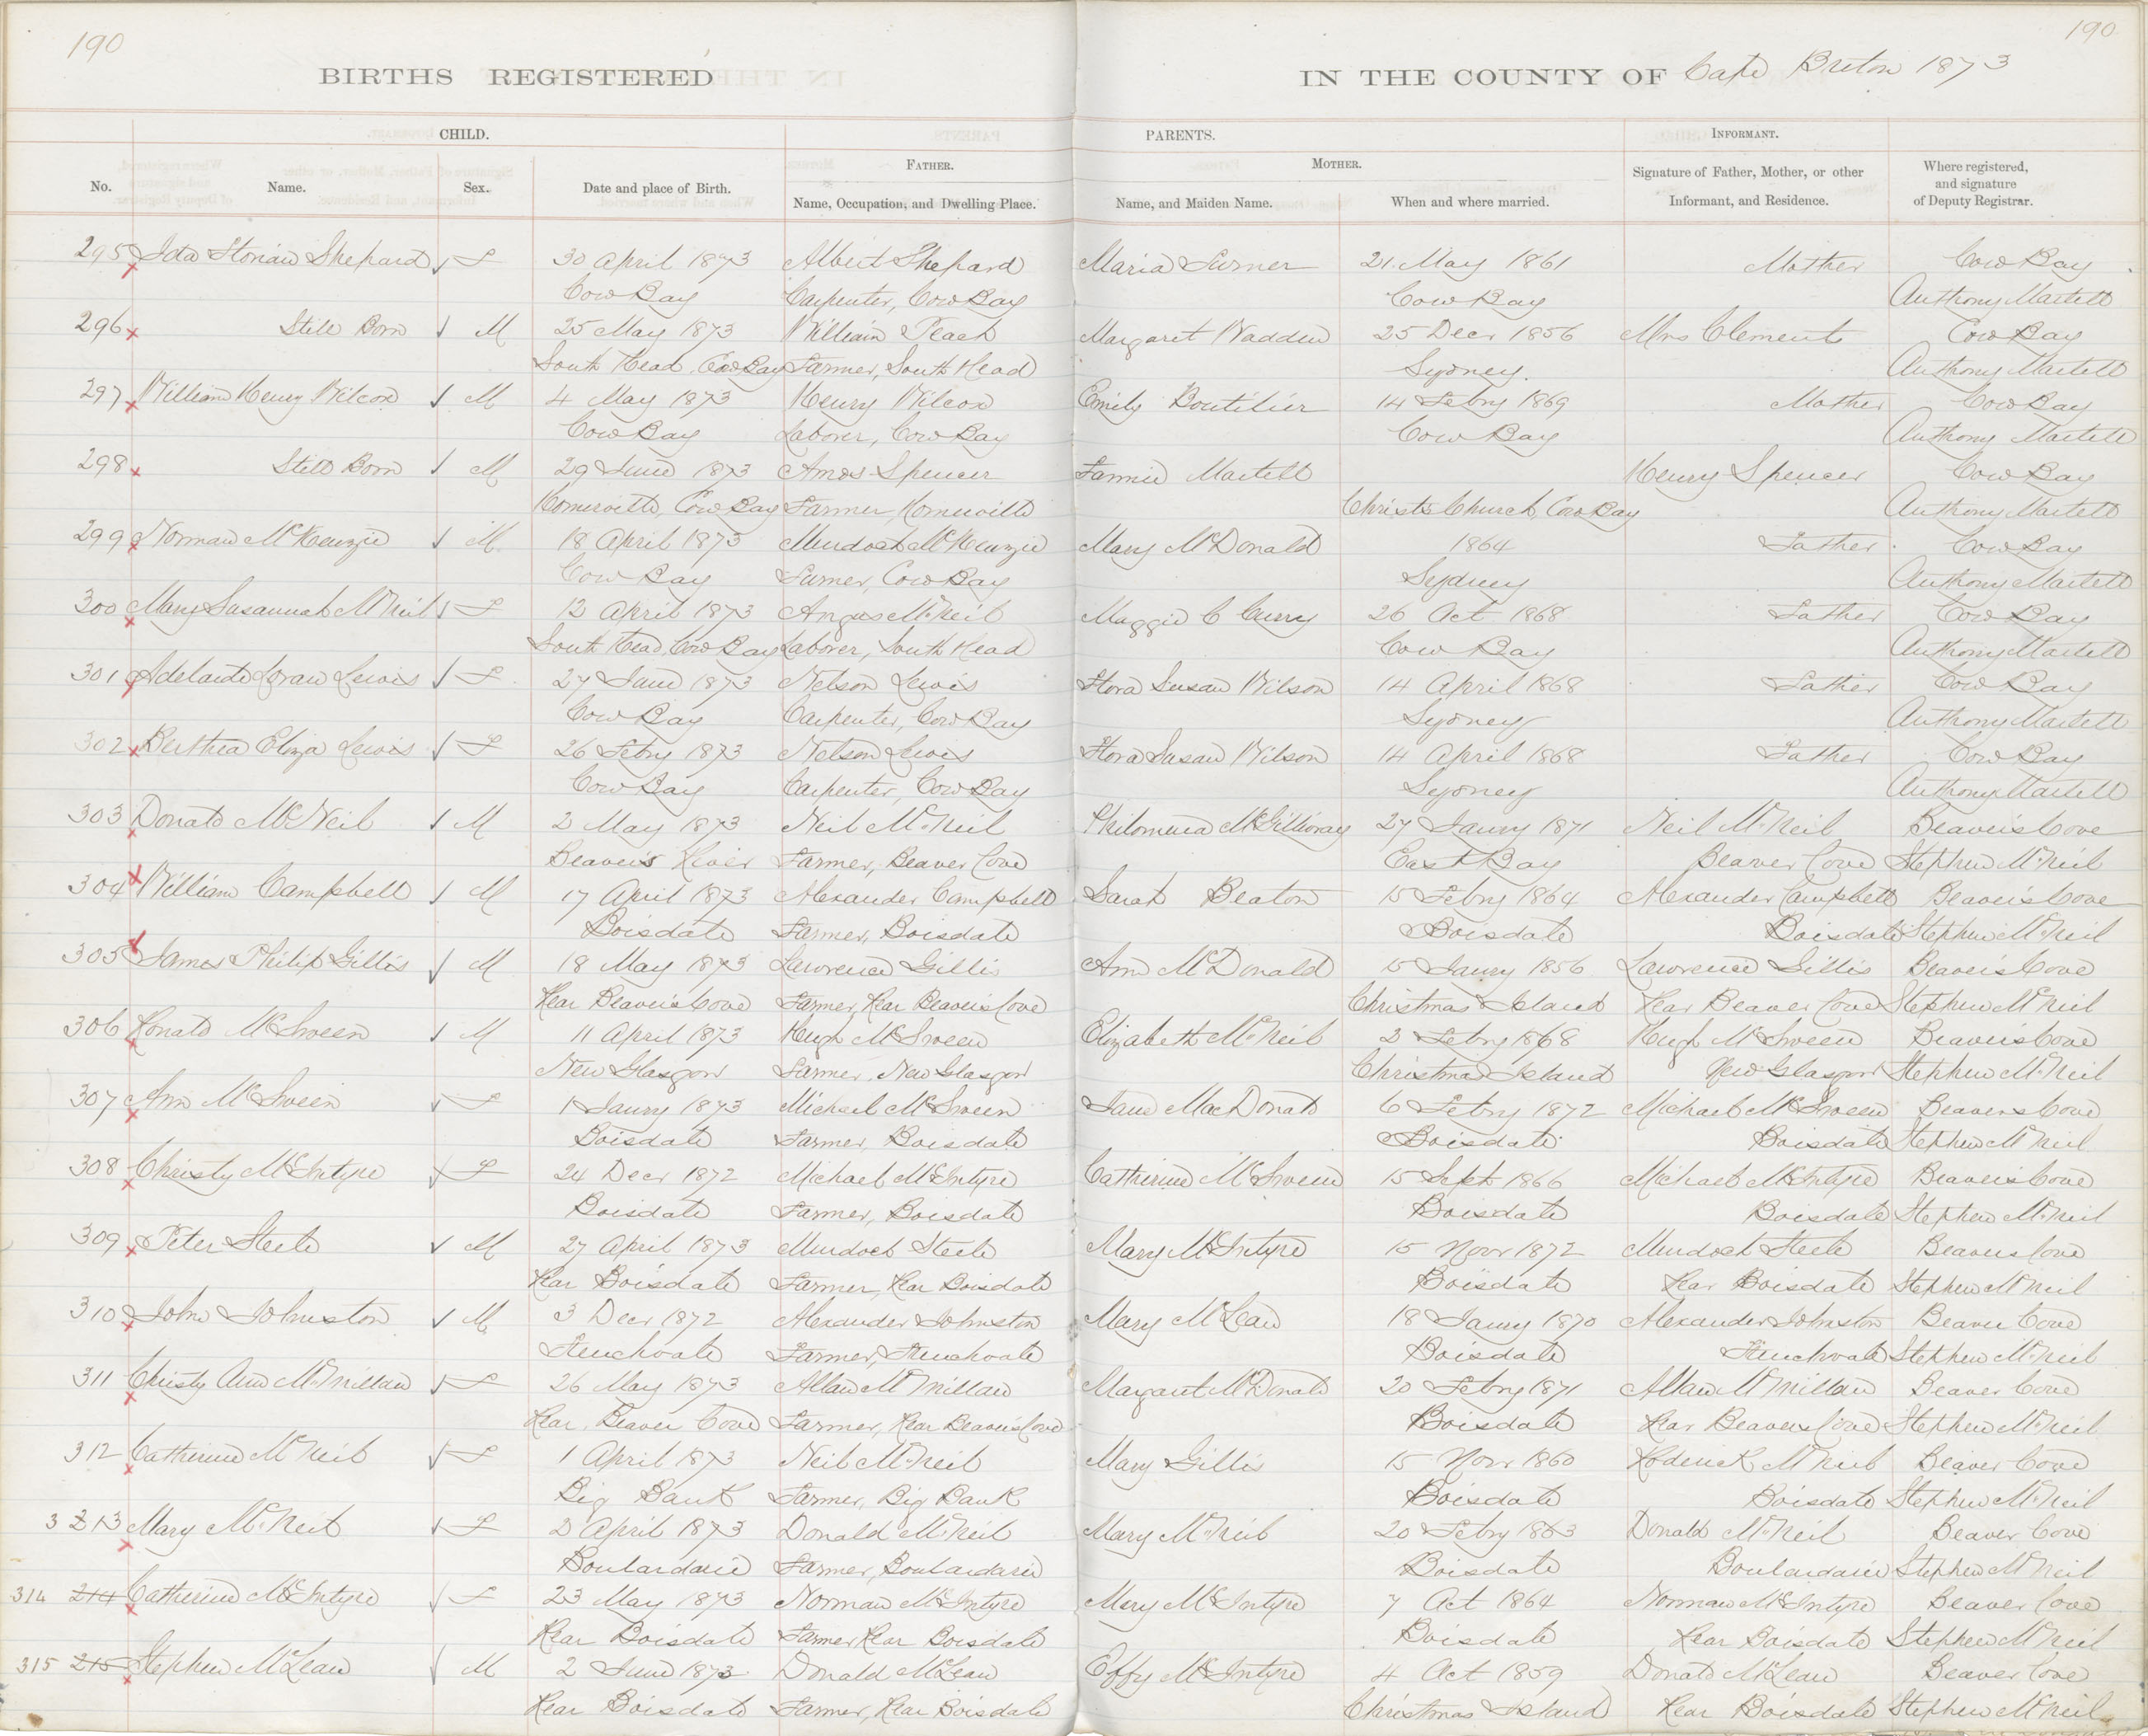 190 190
BIRTHS REGISTERED IN THE COUNTY OF Cape Breton 1873
CHILD. PARENTS. INFORMANT.
FATHER. MOTHER.
No. Name. Sex. Date and place of Birth. Name, Occupation, and Dwelling Place. Name, and Maiden Name. When and where married. Signature of Father, Mother, or other Informant, and Residence. Where registered, and signature of Deputy Registrar.
295 Ida Shepard F 30 April 1873 Albert Shepard Maria Turner 21 May 1861 Mother Cow Bay
Cow Bay Carpenter, Cow Bay Cow Bay Anthony Martell
296 Still Born M 25 May 1873 William Peach Margaret Wadden 25 Decr 1856 Mrs Clements Cow Bay
South Head, Cow Bay Farmer, South Head Sydney. Anthony Martell
297 William Henry Wilcox M 4 May 1873 Henry Wilcox Emily Boutilier 14 Febry 1869 Mother Cow Bay
Cow Bay Laborer, Cow Bay Cow Bay Anthony Martell
298 Still Born M 29 June 1873 Amos Spencer Fannie Martell Henry Spencer Cow Bay
Homeville, Cow Bay Farmer, Homeville Christ's Church, Cow Bay Anthony Martell
299 Norman McKenzie M. 18 April 1873 Murdoch McKenzie Mary McDonald 1864 Father Cow Bay
Cow Bay Cow Bay Sydney Anthony Martell
300 Mary Susannah McNeil F 12 April 1873 Angus McNeil Maggie C Curry 26 Oct 1868 Father Cow Bay
South Head, Cow Bay Laborer, South Head Cow Bay Anthony Martell
301 Adelaide Loran Lewis F 27 June 1873 Nelson Lewis Flora Susan Wilson 14 April 1868 Father Cow Bay
Cow Bay Carpenter, Cow Bay Sydney Anthony Martell
302 Berthea Eliza Lewis F 26 Febry 1873 Nelson Lewis Flora Susan Wilson 14 April 1868 Father Cow Bay
Cow Bay Carpenter, Cow Bay Sydney Anthony Martell
303 Donald McNeil M 2 May 1873 Neil McNeil Philomena McGillivray 27 Janry 1871 Neil McNeil Beaver's Cove
Beaver's Farmer, Beaver Cove East Bay Beaver Cove Stephen McNeil
304 William Campbell M 17 April 1873 Alexander Campbell Sarah Beaton 15 Febry 1864 Alexander Campbell Beaver's Cove
Boisdale Farmer, Boisdale Boisdale Boisdale Stephen McNeil
305 James Philip Gillis M 18 May 1873 Lawrence Gillis Ann McDonald 15 Janry 1856 Lawrence Gillis Beaver's Cove
Rear Beaver's Cove Farmer, Rear Beaver's Cove Christmas Island Rear Beaver Cove Stephen McNeil
306 Ronald McSween M 11 April 1873 Hugh McSween Elizabeth McNeil 2 Febry 1868 Hugh McSween Beaver's Cove
New Glasgow Farmer, New Glasgow Christmas Island New Glasgow Stephen McNeil
307 Ann McSween F 1 Janry 1873 Michael McSween Jane MacDonald 6 Febry 1872 Michael McSween Beavers Cove
Boisdale Farmer, Boisdale Boisdale Boisdale Stephen McNeil
308 Christy McIntyre F 24 Decr 1872 Michael McIntyre Catherine McSween 15 Sept 1866 Michael McIntyre Beaver's Cove
Boisdale Farmer, Boisdale Boisdale Boisdale Stephen McNeil
309 Peter Steele M 27 April 1873 Murdoch Steele Mary McIntyre 15 Novr 1872 Murdoch Steele Beavers Cove
Rear Boisdale Farmer, Rear Boisdale Boisdale Rear Boisdale Stephen McNeil
310 John Johnston M 3 Decr 1872 Alexander Johnston Mary McLean 18 Janry 1870 Alexander Johnston Beaver Cove
Farmer, Boisdale Stephen McNeil
311 Christy Ann McMillan F 26 May 1873 Allan McMillan Margaret McDonald 20 Febry 1871 Allan McMillan Beaver Cove
Rear Beaver Cove Farmer, Rear Beaver's Cove Boisdale Rear Beavers Cove Stephen McNeil
312 Catherine McNeil F 1 April 1873 Neil McNeil Mary Gillis 15 Novr 1860 Roderick McNeil Beaver Cove
Big Bank Farmer, Big Bank Boisdale Boisdale Stephen McNeil
3 213 Mary McNeil F 2 April 1873 Donald McNeil Mary McNeil 20 Febry 1863 Donald McNeil Beaver Cove
Boulardarie Farmer, Boulardarie Boisdale Boulardarie Stephen McNeil
314 214 Catherine McIntyre F 23 May 1873 Norman McIntyre Mary McIntyre 7 Oct 1864 Norman McIntyre Beaver Cove
Rear Boisdale Farmer Rear Boisdale Boisdale Rear Boisdale Stephen McNeil
315 215 Stephen McLean M 2 June 1873 Donald McLean Effy McIntyre 4 Oct 1859 Donald McLean Beaver Cove
Rear Boisdale Farmer, Rear Boisdale Christmas Island Rear Boisdale Stephen McNeil